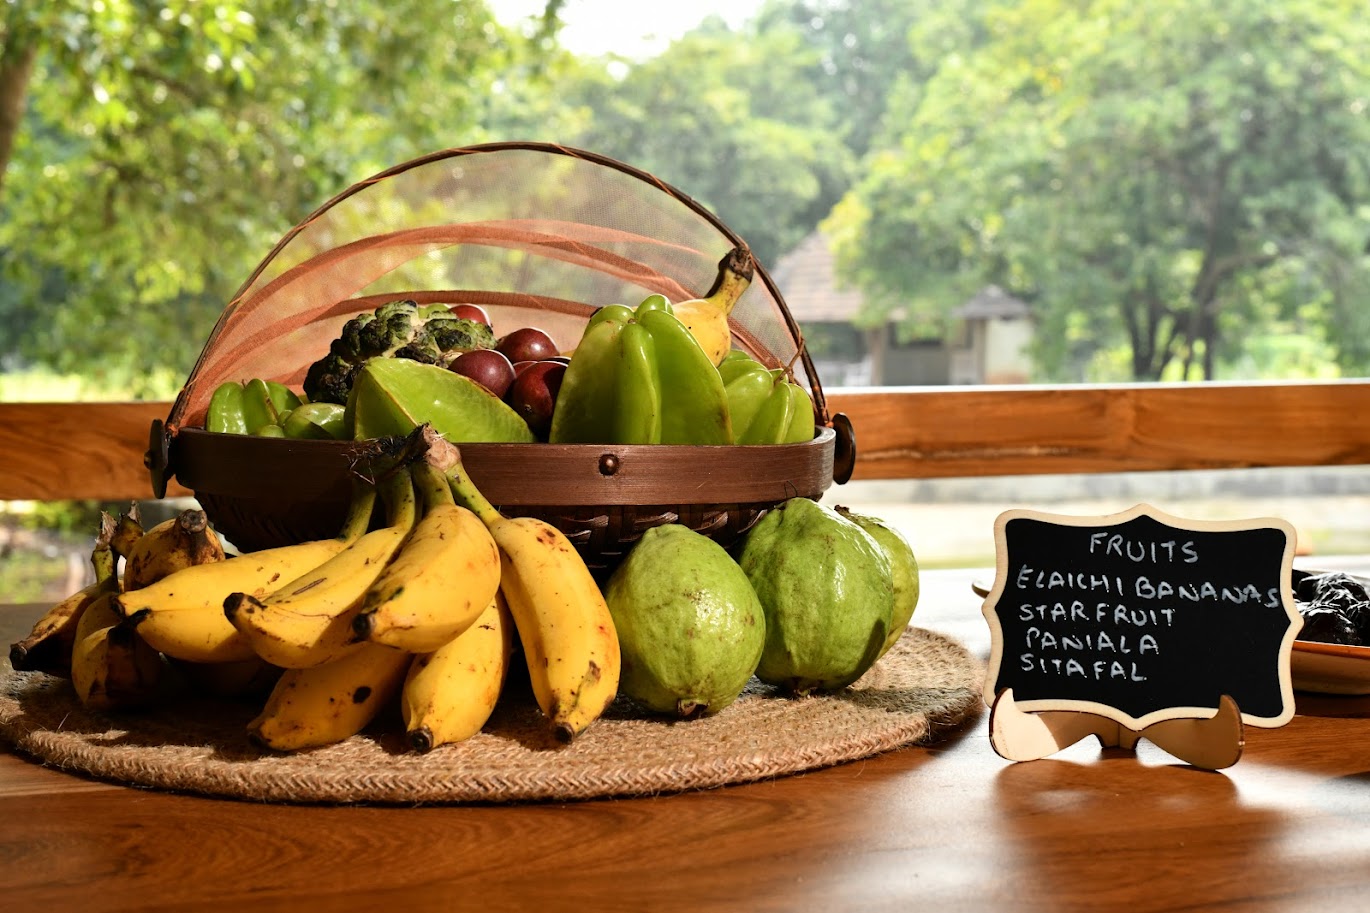 FRUITS
ELAICHI BANANAS
STARFRUIT
PANIALA
SITAFAL